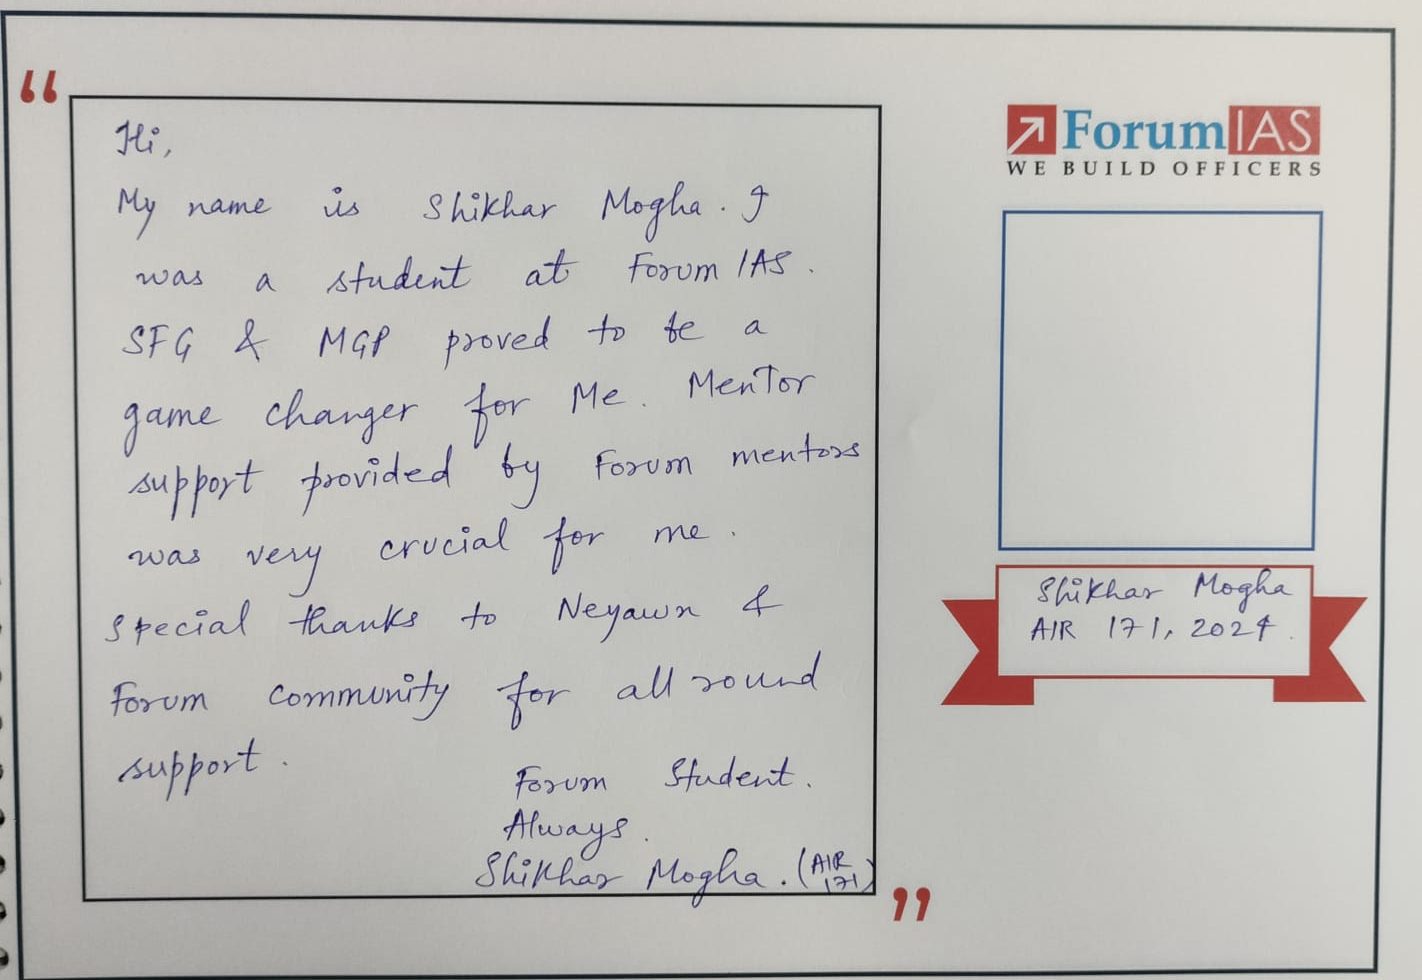 “
Hi,
My name is Shikhar Mogha. I
was a student at Forum IAS.
SFG & MGP proved to be a
game changer for Me. Mentor
support provided by Forum mentors
was very crucial for me.
Special thanks to Neyawn &
Forum community for all round
support.
Forum Student.
Always.
Shikhar Mogha. (AIR
171)
”
ForumIAS
WE BUILD OFFICERS
Shikhar Mogha
AIR 171, 2024.